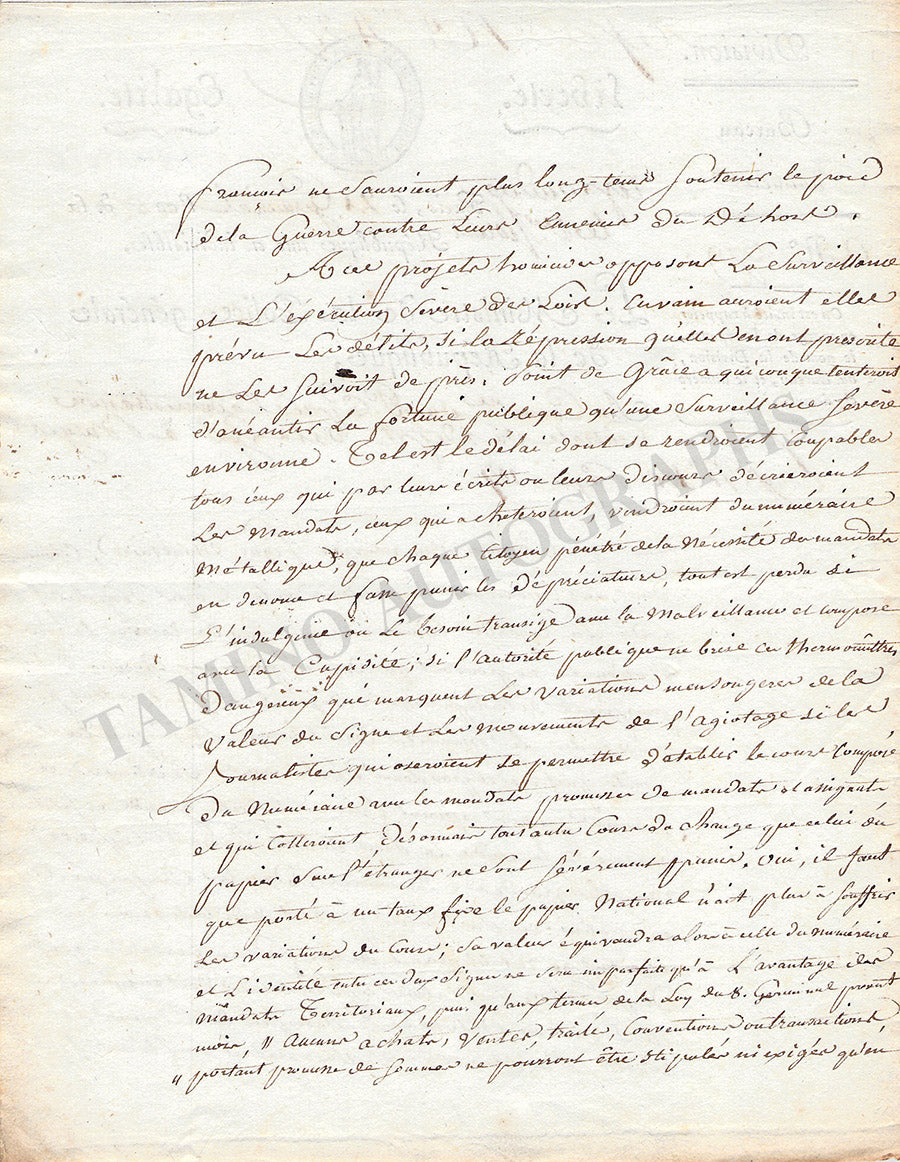 françois ne Sauroient plus long-tems Soutenir le poid
de la Guerre contre Leurs Ennemis du Déhors.
A ces projets homicides opposons La Surveillance
et L'exécution Sévère des Loix. En vain auroient elles
prévu Les délits, si la Répression qu'elles en ont prescrite
ne Les Suivoit de près. Point de Grâce a quiconque tenterois
d'anéantir La fortune publique qu'une Surveillance Sévère
environne. Tel est le délai dont se rendroient Coupables
tous ceux qui par leurs écrits ou leurs discours décrieroient
Les Mandats, ceux qui acheteroient, vendroient du numéraire
Métallique, que chaque Citoyen pénétré de la Nécessité du mandats
en dénonce et fasse punir les dépréciateurs, tout est perdu si
L'indulgence ou Le besoin transige avec la Malveillance et compose
avec la Cupidité; si l'autorité publique ne brise ces thermomêttres
Dangéreux qué marquent Les Variations mensongeres de la
Valeur du Signe et Les mouvements de l'Agiotage si les
Journalistes qui oseroient se permettre d'établir le cours Composé
du Numéraire avec les mandats promesses de mandats et assignats
et qui Cotteroient Désormais tout autre Cours du change que celui du
papier Sur l'étranger ne Sont Sévérement punis. Oui, il faut
que porté à un taux fixe le papier National n'ait plus à Souffrir
Les variations du Cours; Sa valeur équivaudra alors à celle du numéraire
et L'identité entre ces deux Signes ne Sera imparfaite qu'à L'avantage des
Mandats Territoriaux, puis qu'aux termes de la Loy du 8. Germinal présent
mois, " Aucuns achats, Ventes, traité, Conventions ou transactions,
" portant promesse de Sommes ne pourront être Stipulés ni exigés qu'en
TAMINO AUTOGRAPHS
Division.
Liberté.
Egalité.
Bureau